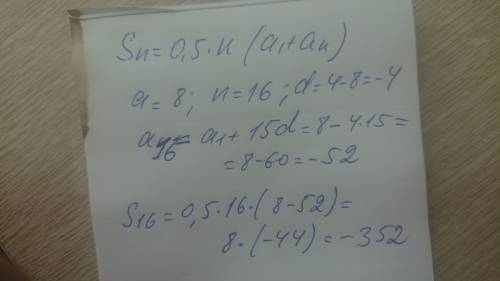 Sn=0,5·n (a₁+an)
a=8; n=16; d=4-8=-4
a₁₆= a₁+15d=8-4·15=
=8-60=-52
S₁₆=0,5·16·(8-52)=
8·(-44)=-352